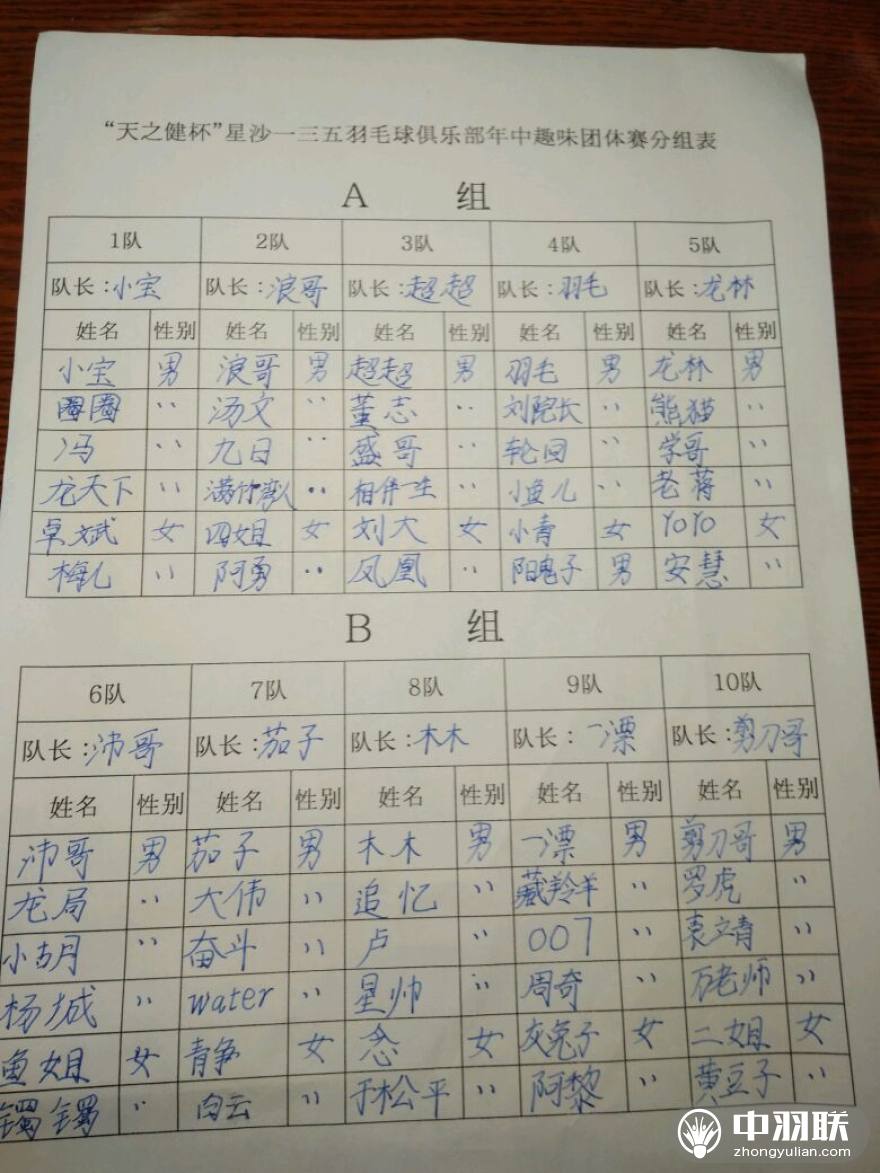 “天之健杯”星沙一三五羽毛球俱乐部年中趣味团体赛分组表
A 组
1队 2队 3队 4队 5队
队长:小宝 队长:浪哥 队长:超超 队长:羽毛 队长:龙林
姓名 性别 姓名 性别 姓名 性别 姓名 性别 姓名 性别
小宝 男 浪哥 男 超超 男 羽毛 男 龙林 男
圈圈 〃 汤文 〃 董志 〃 刘院长 〃 熊猫 〃
冯 〃 九日 〃 盛哥 〃 轮回 〃 学哥 〃
龙天下 〃 〃 相伴一生 〃 小鱼儿 〃 老蒋 〃
卓斌 女 四姐 女 刘大 女 小青 女 YOYO 女
梅儿 〃 阿勇 〃 凤凰 〃 阳电子 男 安慧 〃
B 组
6队 7队 8队 9队 10队
队长:沛哥 队长:茄子 队长:木木 队长:一漂 队长:剪刀哥
姓名 性别 姓名 性别 姓名 性别 姓名 性别 姓名 性别
沛哥 男 茄子 男 木木 男 一漂 男 剪刀哥 男
龙局 〃 大伟 〃 追忆 〃 藏羚羊 〃 罗虎 〃
小胡 〃 奋斗 〃 卢 〃 007 〃 袁立青 〃
杨城 〃 water 〃 星帅 〃 周奇 〃 万老师 〃
鱼姐 女 静 女 念 女 灰兔子 女 二姐 女
镯镯 〃 白云 〃 于松平 〃 阿黎 〃 黄豆子 〃
中羽联
zhongyulian.com